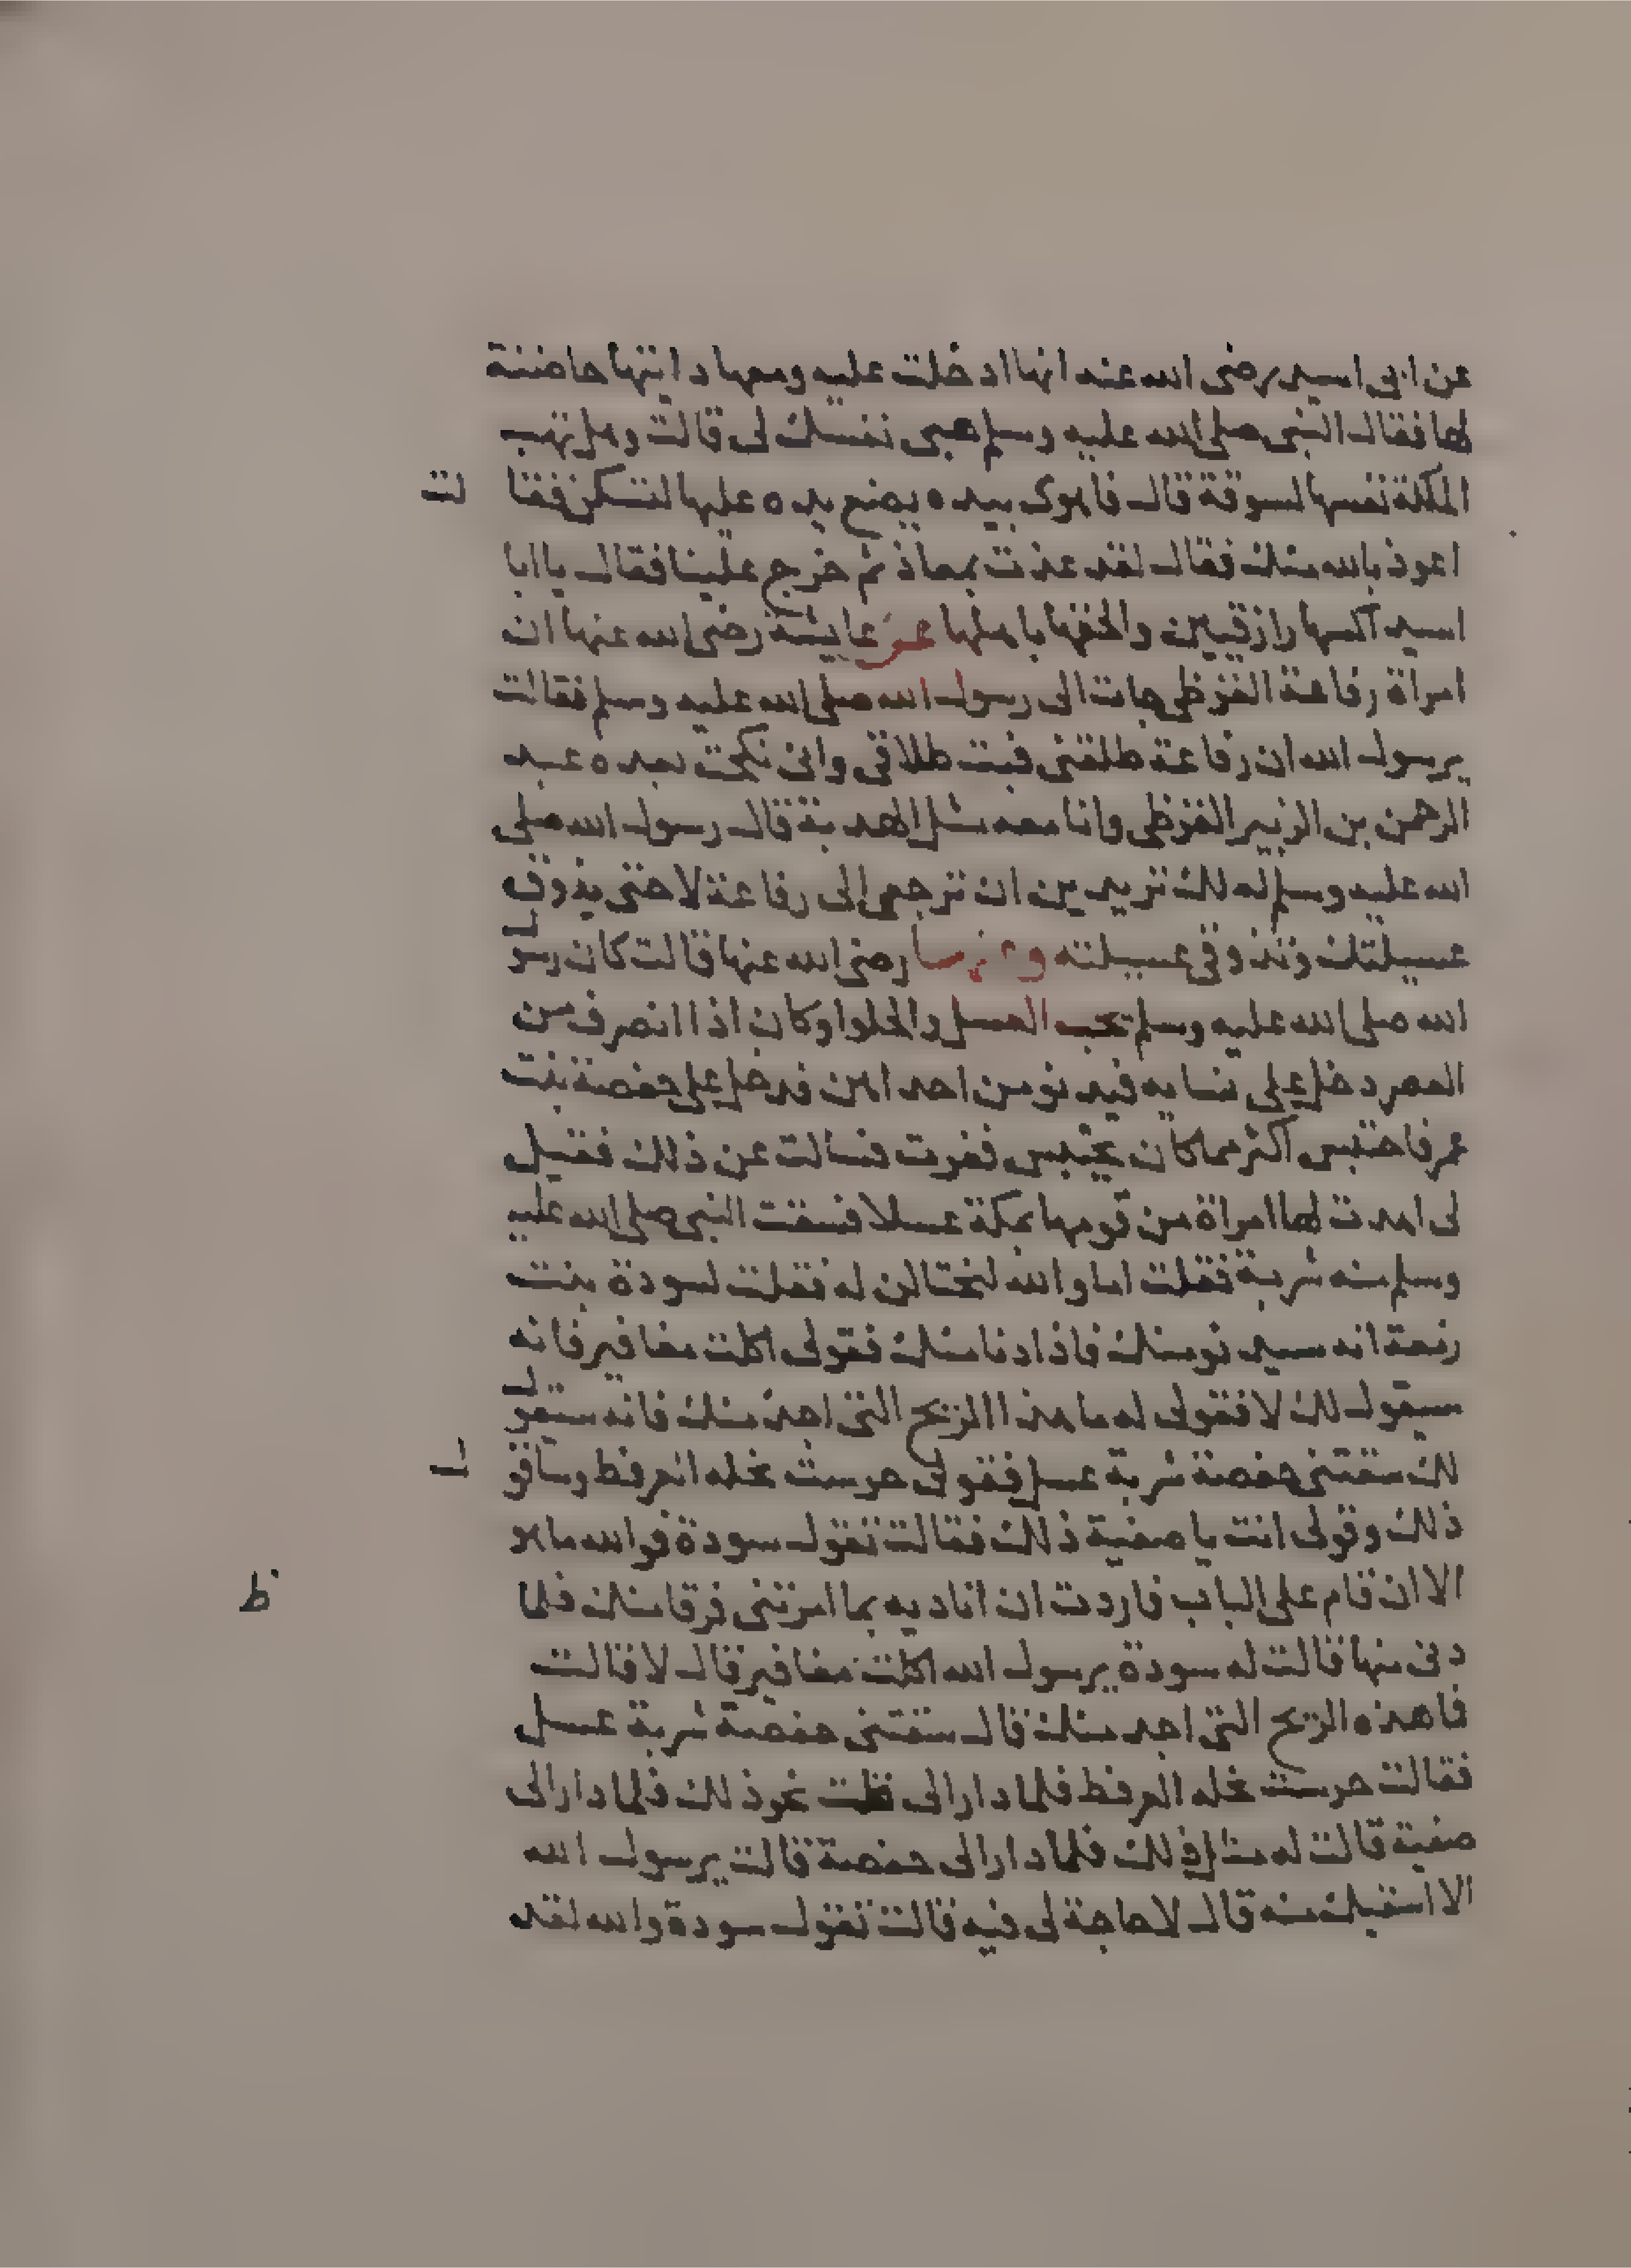 عن ابى اسيد رضى الله عنه انها ادخلت عليه ومعها دايتها حاضنة
لها فقال النبى صلى الله عليه وسلم هبى نفسك لى قالت وهل تهب
الملكة نفسها لسوقة قال فاهوى بيده يضع يده عليها لتسكن فقالت
اعوذ بالله منك فقال لقد عذت بمعاذ ثم خرج علينا فقال يا ابا
اسيد اكسها رازقيين والحقها باهلها عن عايشة رضى الله عنها ان
امراة رفاعة القرظى جات الى رسول الله صلى الله عليه وسلم فقالت
يرسول الله ان رفاعة طلقنى فبت طلاقى وانى نكحت بعده عبد
الرحمن بن الزبير القرظى وانا معه مثل الهدبة قال رسول الله صلى
الله عليه وسلم لعلك تريدين ان ترجعى الى رفاعة لا حتى يذوق
عسيلتك وتذوقى عسيلته وعنها رضى الله عنها قالت كان رسول
الله صلى الله عليه وسلم يحب العسل والحلوا وكان اذا انصرف من
العصر دخل على نسايه فيدنو من احداهن فدخل على حفصة بنت
عمر فاحتبس اكثر مما كان يحتبس فغرت فسالت عن ذلك فقيل
لى اهدت لها امراة من قومها عكة عسلا فسقت النبى صلى الله عليه
وسلم منه شربة فقلت اما والله لنحتالن له فقلت لسودة بنت
زمعة انه سيدنو منك فاذا دنا منك فقولى اكلت مغافير فانه
سيقول لك لا فقولى له ما هذا الريح التى اجد منك فانه سيقول
لك سقتنى حفصة شربة عسل فقولى جرست نحله العرفط وساقول
ذلك وقولى انت يا صفية ذلك فقالت تقول سودة فوالله ما هو
الا ان قام على الباب فاردت ان اناديه بما امرتنى فرقا منك فلما
دنى منها قالت له سودة يرسول الله اكلت مغافير قال لا قالت
فما هذه الريح التى اجد منك قال سقتنى حفصة شربة عسل
فقالت جرست نحله العرفط فلما دار الى قلت نحو ذلك فلما دار الى
صفية قالت له مثل ذلك فلما دار الى حفصة قالت يرسول الله
الا اسقيك منه قال لا حاجة لى فيه قالت تقول سودة والله لقد